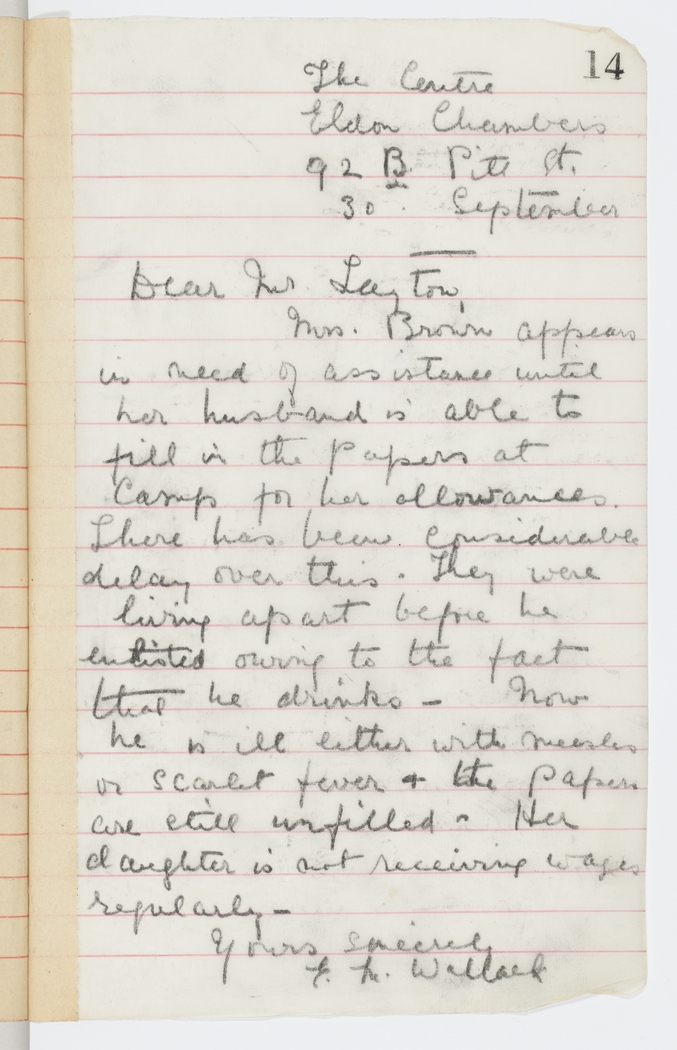 14
The Centre
Eldon Chambers
92 B Pitt St.
30. September
Dear Mr. Layton,
Mrs. Brown appears
in need of assistance until
her husband is able to
fill in the papers at
Camp for her allowances.
There has been considerable
delay over this. They were
living apart before he
enlisted owing to the fact
that he drinks – Now
he is ill either with measles
or scarlet fever + the papers
are still unfilled - Her
daughter is not receiving wages
regularly –
Yours sincerely
F. M. Wallack